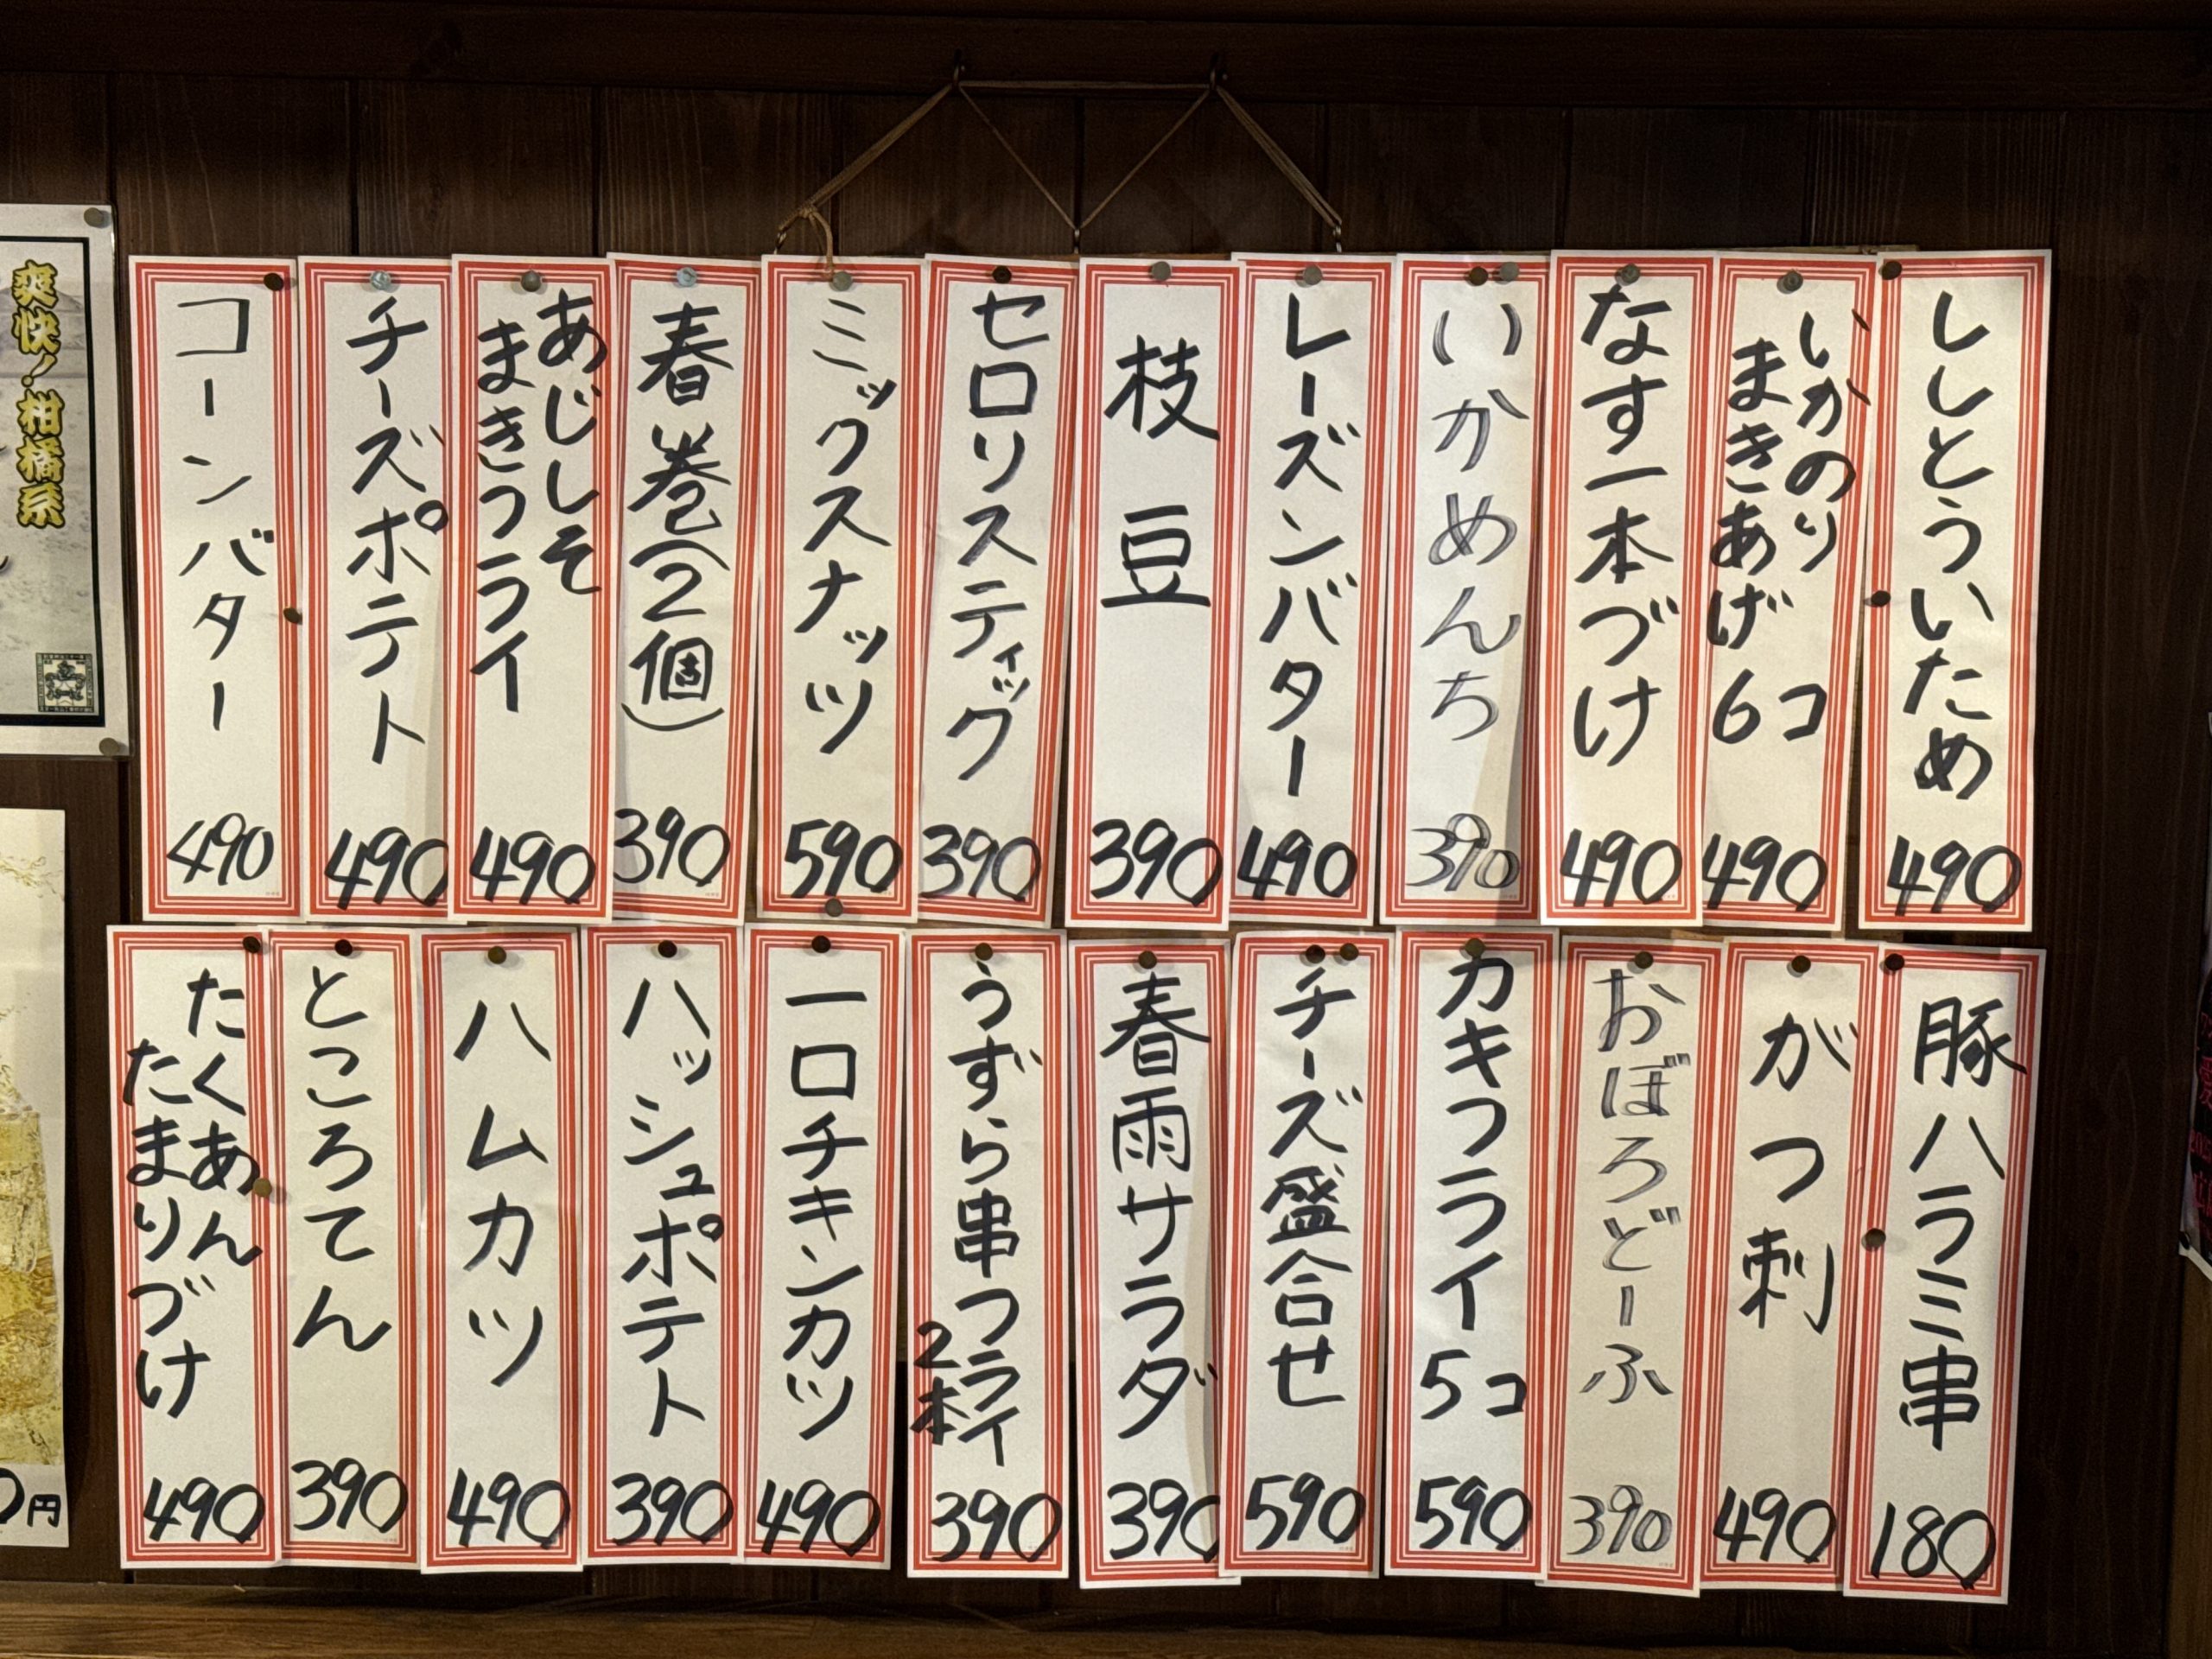 ししとういため
490
いかのり
まきあげ 6コ
490
なす一本づけ
490
いかめんち
390
レーズンバター
490
枝豆
390
セロリスティック
390
ミックスナッツ
590
春巻(2個)
390
あじしそ
まきフライ
490
チーズポテト
490
コーンバター
490
豚ハラミ串
180
がつ刺
490
おぼろどーふ
390
カキフライ5コ
590
チーズ盛合せ
590
春雨サラダ
390
うずら串フライ
2本
390
一口チキンカツ
490
ハッシュポテト
390
ハムカツ
490
ところてん
390
たくあん
たまりづけ
490
爽快!柑橘系
円